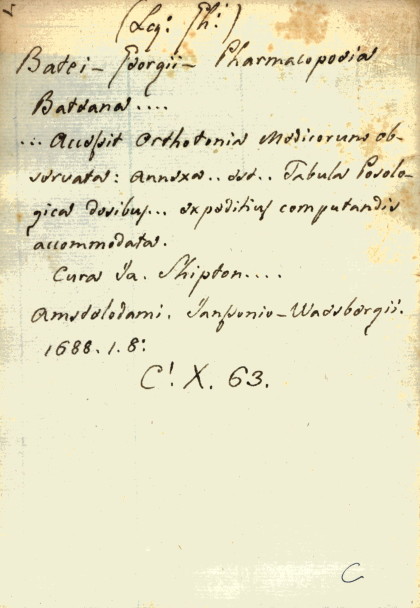 (Leg: Ph:)
Batei - Georgii - Pharmacopoeia
Bateana....
... Accessit Orthotonia Medicorum ob-
servata: Annexa.. est.. Tabula Posolo-
gica dosibus... expeditius computandis
accommodata.
Cura Ja. Shipton....
Amstelodami. Jansonio-Waesbergii.
1688. 1. 8:
C! X. 63.
C